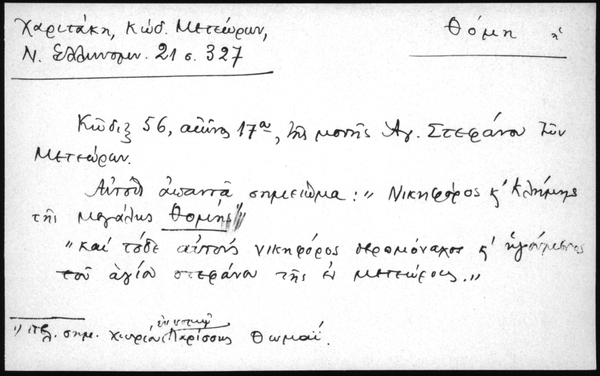 Χαριτάκη, Κώδ. Μετεώρων,
Ν. Ἑλληνομν. 21 σ. 327
Θόμη ἡ
Κῶδιξ 56, αἰῶνος 17ου, τῆς μονῆς Ἁγ. Στεφάνου τῶν
Μετεώρων.
Αὐτοῦ ἀπαντᾷ σημείωμα: „ Νικηφόρος κ' Κλήμης
τῆς μεγάλης Θομής"
„ καὶ τόδε αὐτοῦ νικηφόρος ιερομόναχος κ' ἡγούμενος
τοῦ ἁγίου στεφάνου τῆς ἐν μετεώροις."
σημ. χωρίον Λαρίσσης Θωμαΐ.